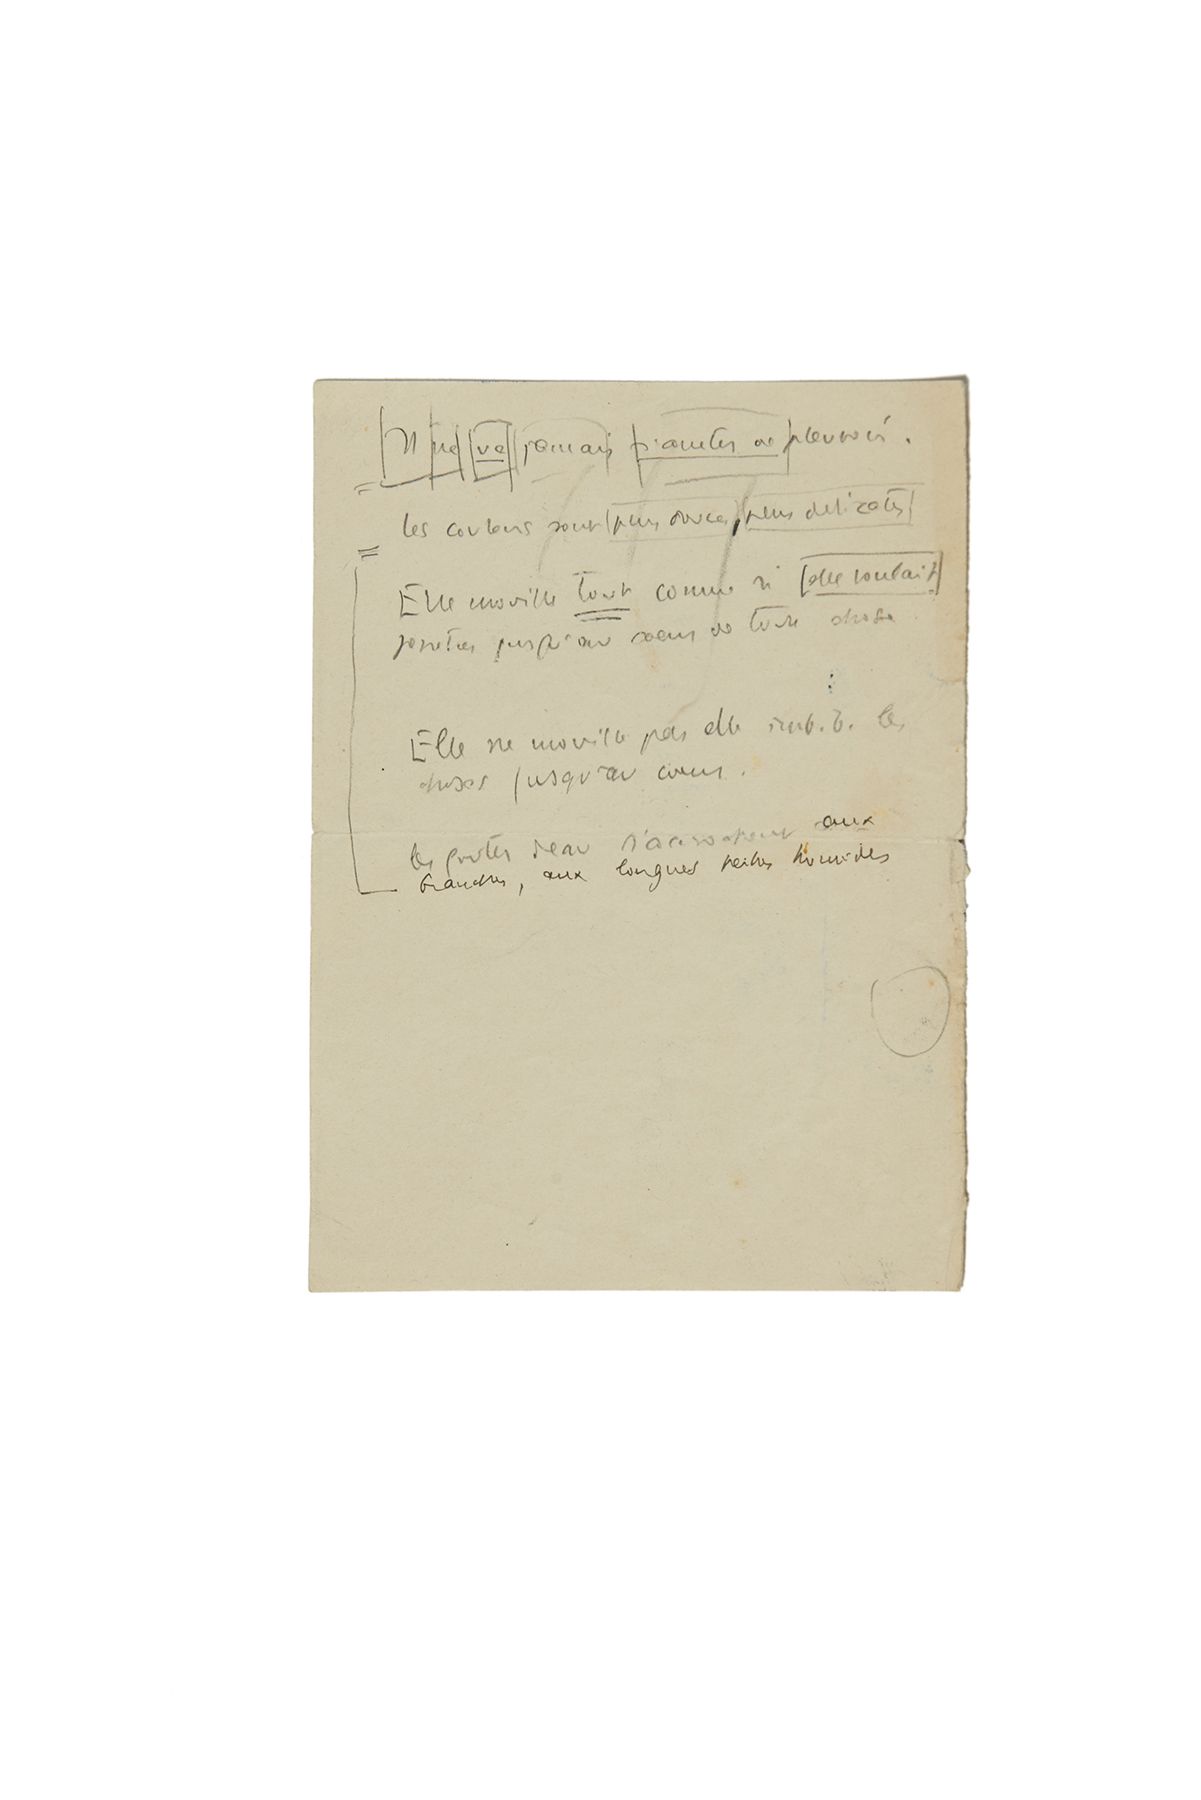 Il ne va jamais s'arrêter de pleuvoir.
les couleurs sont plus douces, plus delicates
Elle mouille tout comme si elle voulait
penetrer jusqu'au coeur de toute chose
Elle ne mouille pas elle imbibe les
choses jusqu'au coeur.
les gouttes d'eau s'accrochent aux
branches, aux longues humides